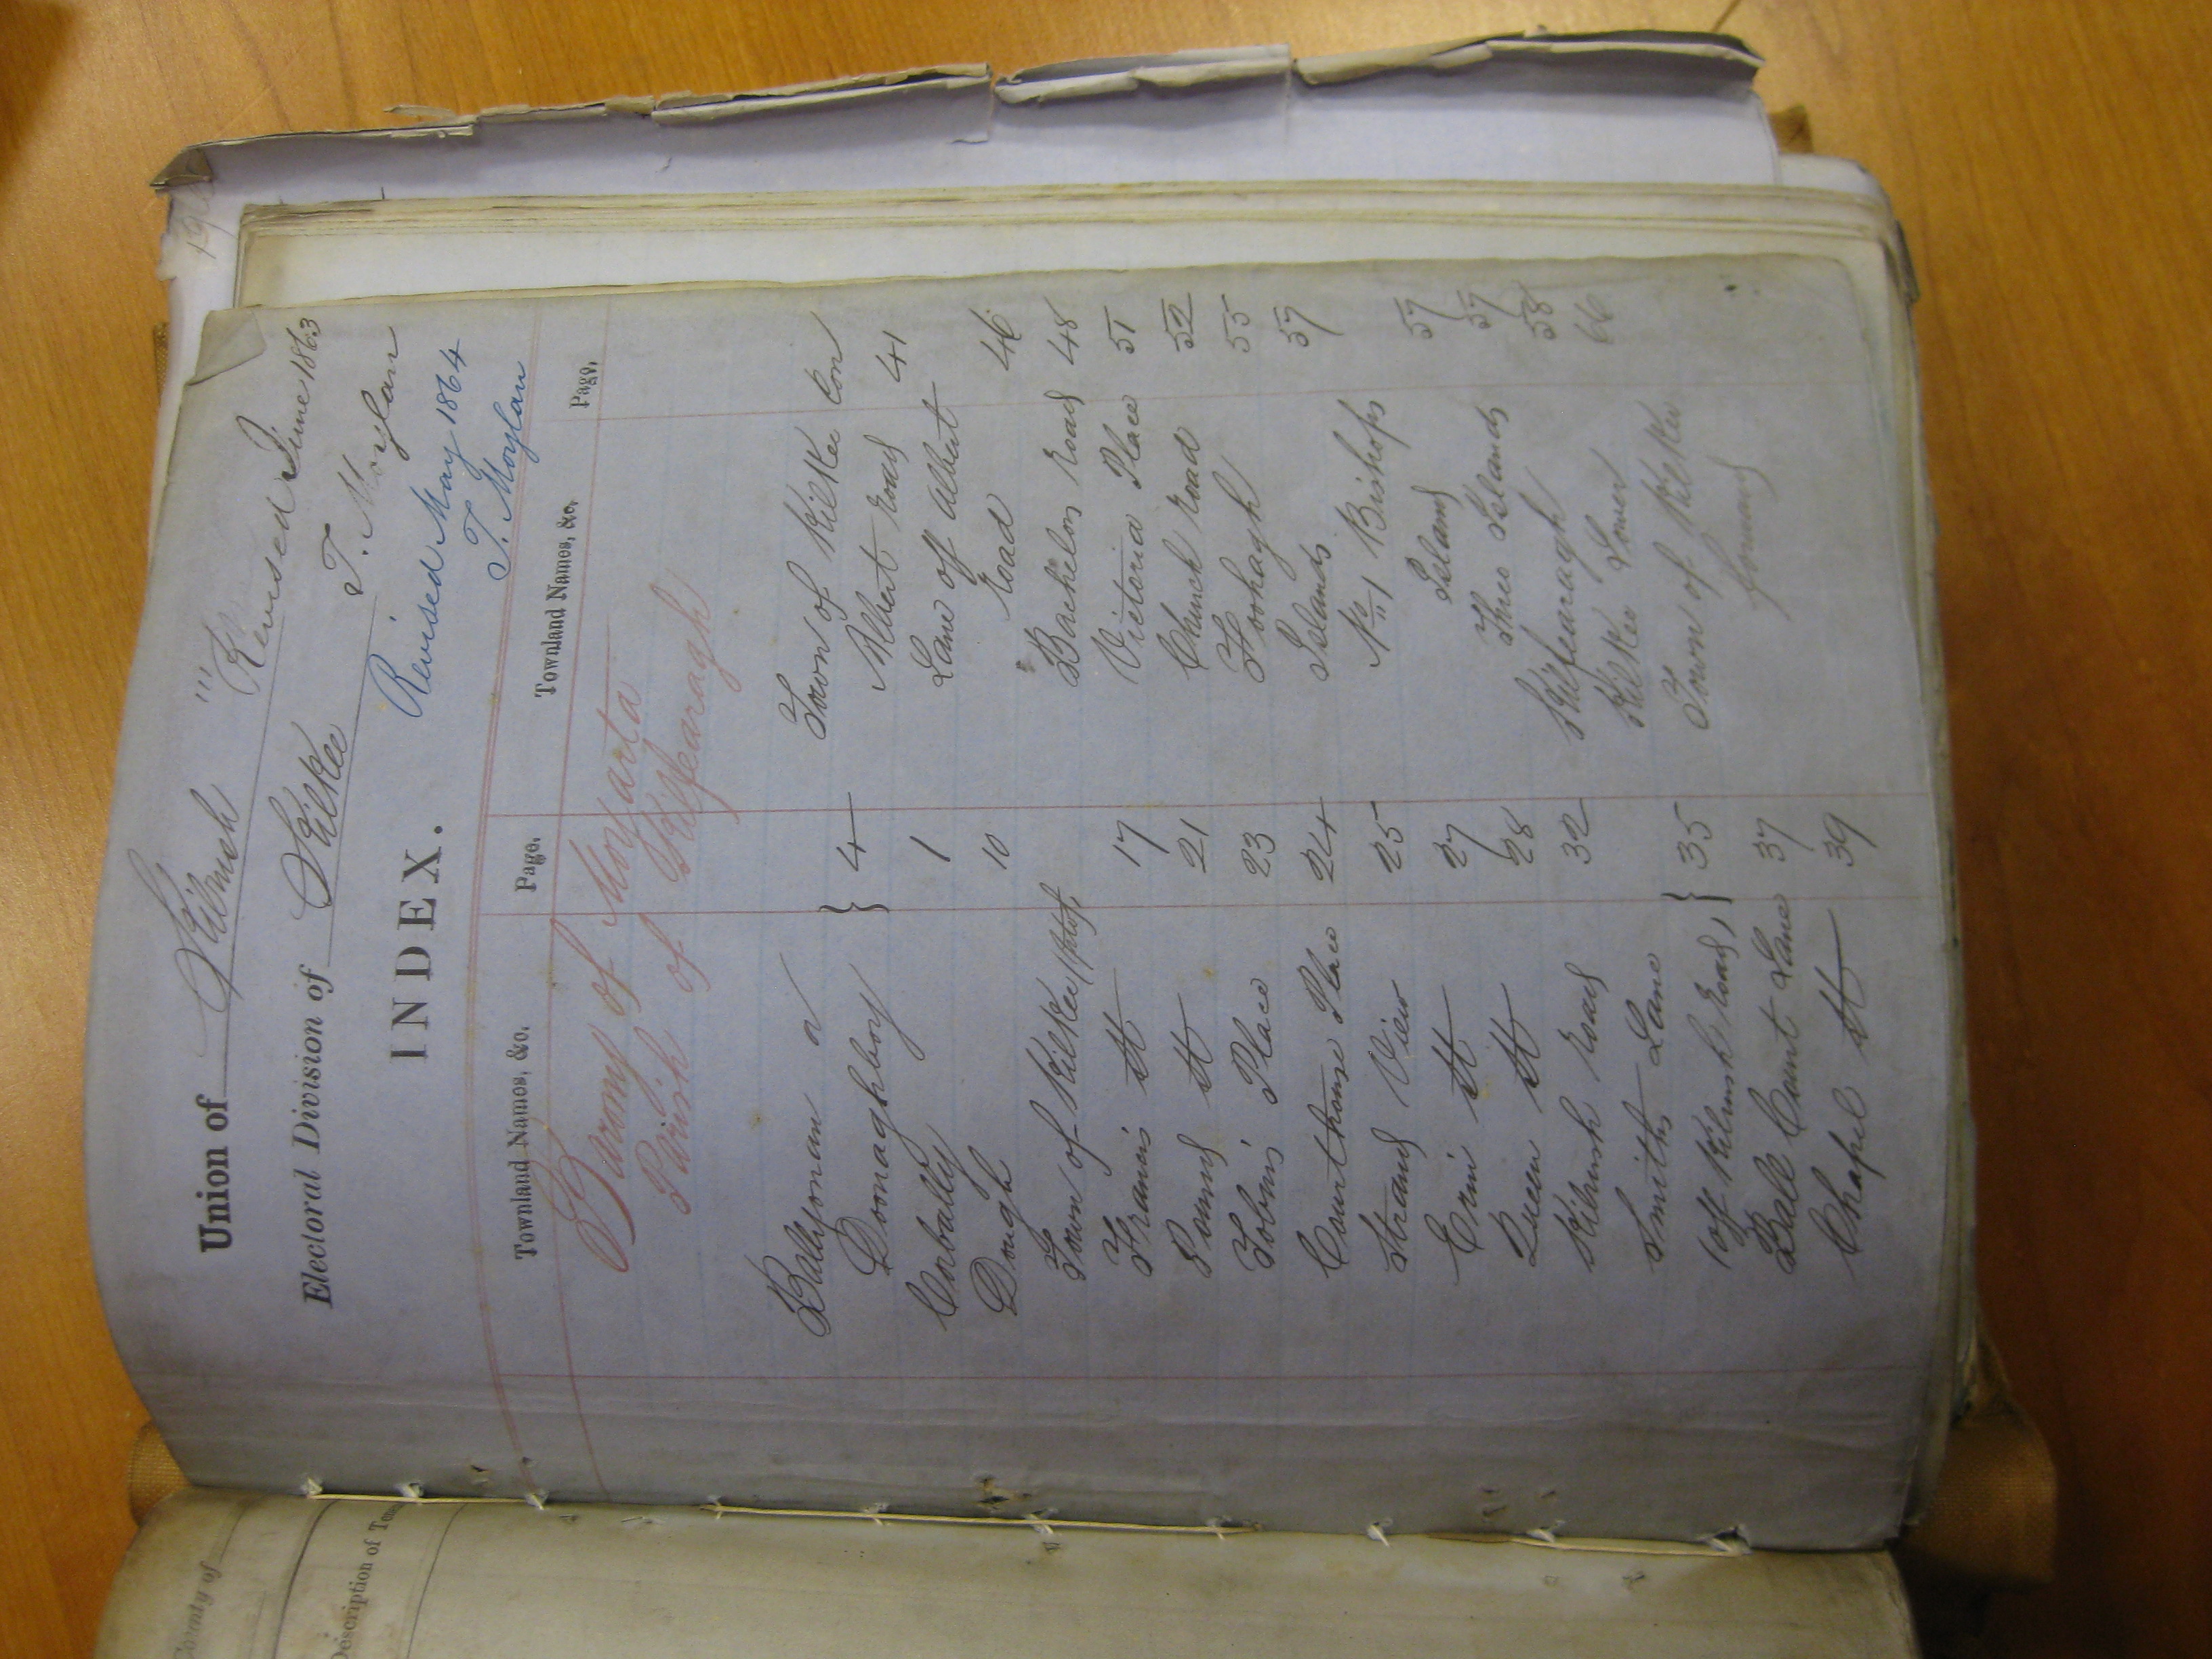 Union of Kilrush
Revised June 1863
T. Moylan
Electoral Division of Kilkee
Revised May 1864
T. Moylan
INDEX.
Townland Names, &c. Page. Townland Names, &c. Page.
Barony of Moyarta
Parish of Kilfearagh
Ballyonan or
Doonaghboy } 4
Corbally 1
Dough 10
Town of Kilkee
Francis St 17
21
Tobins Place 23
Courthouse Place 24
Strand View 25
Erin St 27
Queen St 28
Kilrush Road 32
Smiths Lane
(off Kilrush Road) } 35
Ball Court Lane 37
Chapel St 39
Town of Kilkee Con
Albert Road 41
Lane of Albert
Road 46
Bachelors Road 48
Victoria Place 51
Church Road 52
Foohagh 55
Islands 57
No 1 Bishops
Island 57
Three Islands 57
Kilfearagh 58
Kilkee Lower 66
Town of Kilkee
County of
Description of Ten